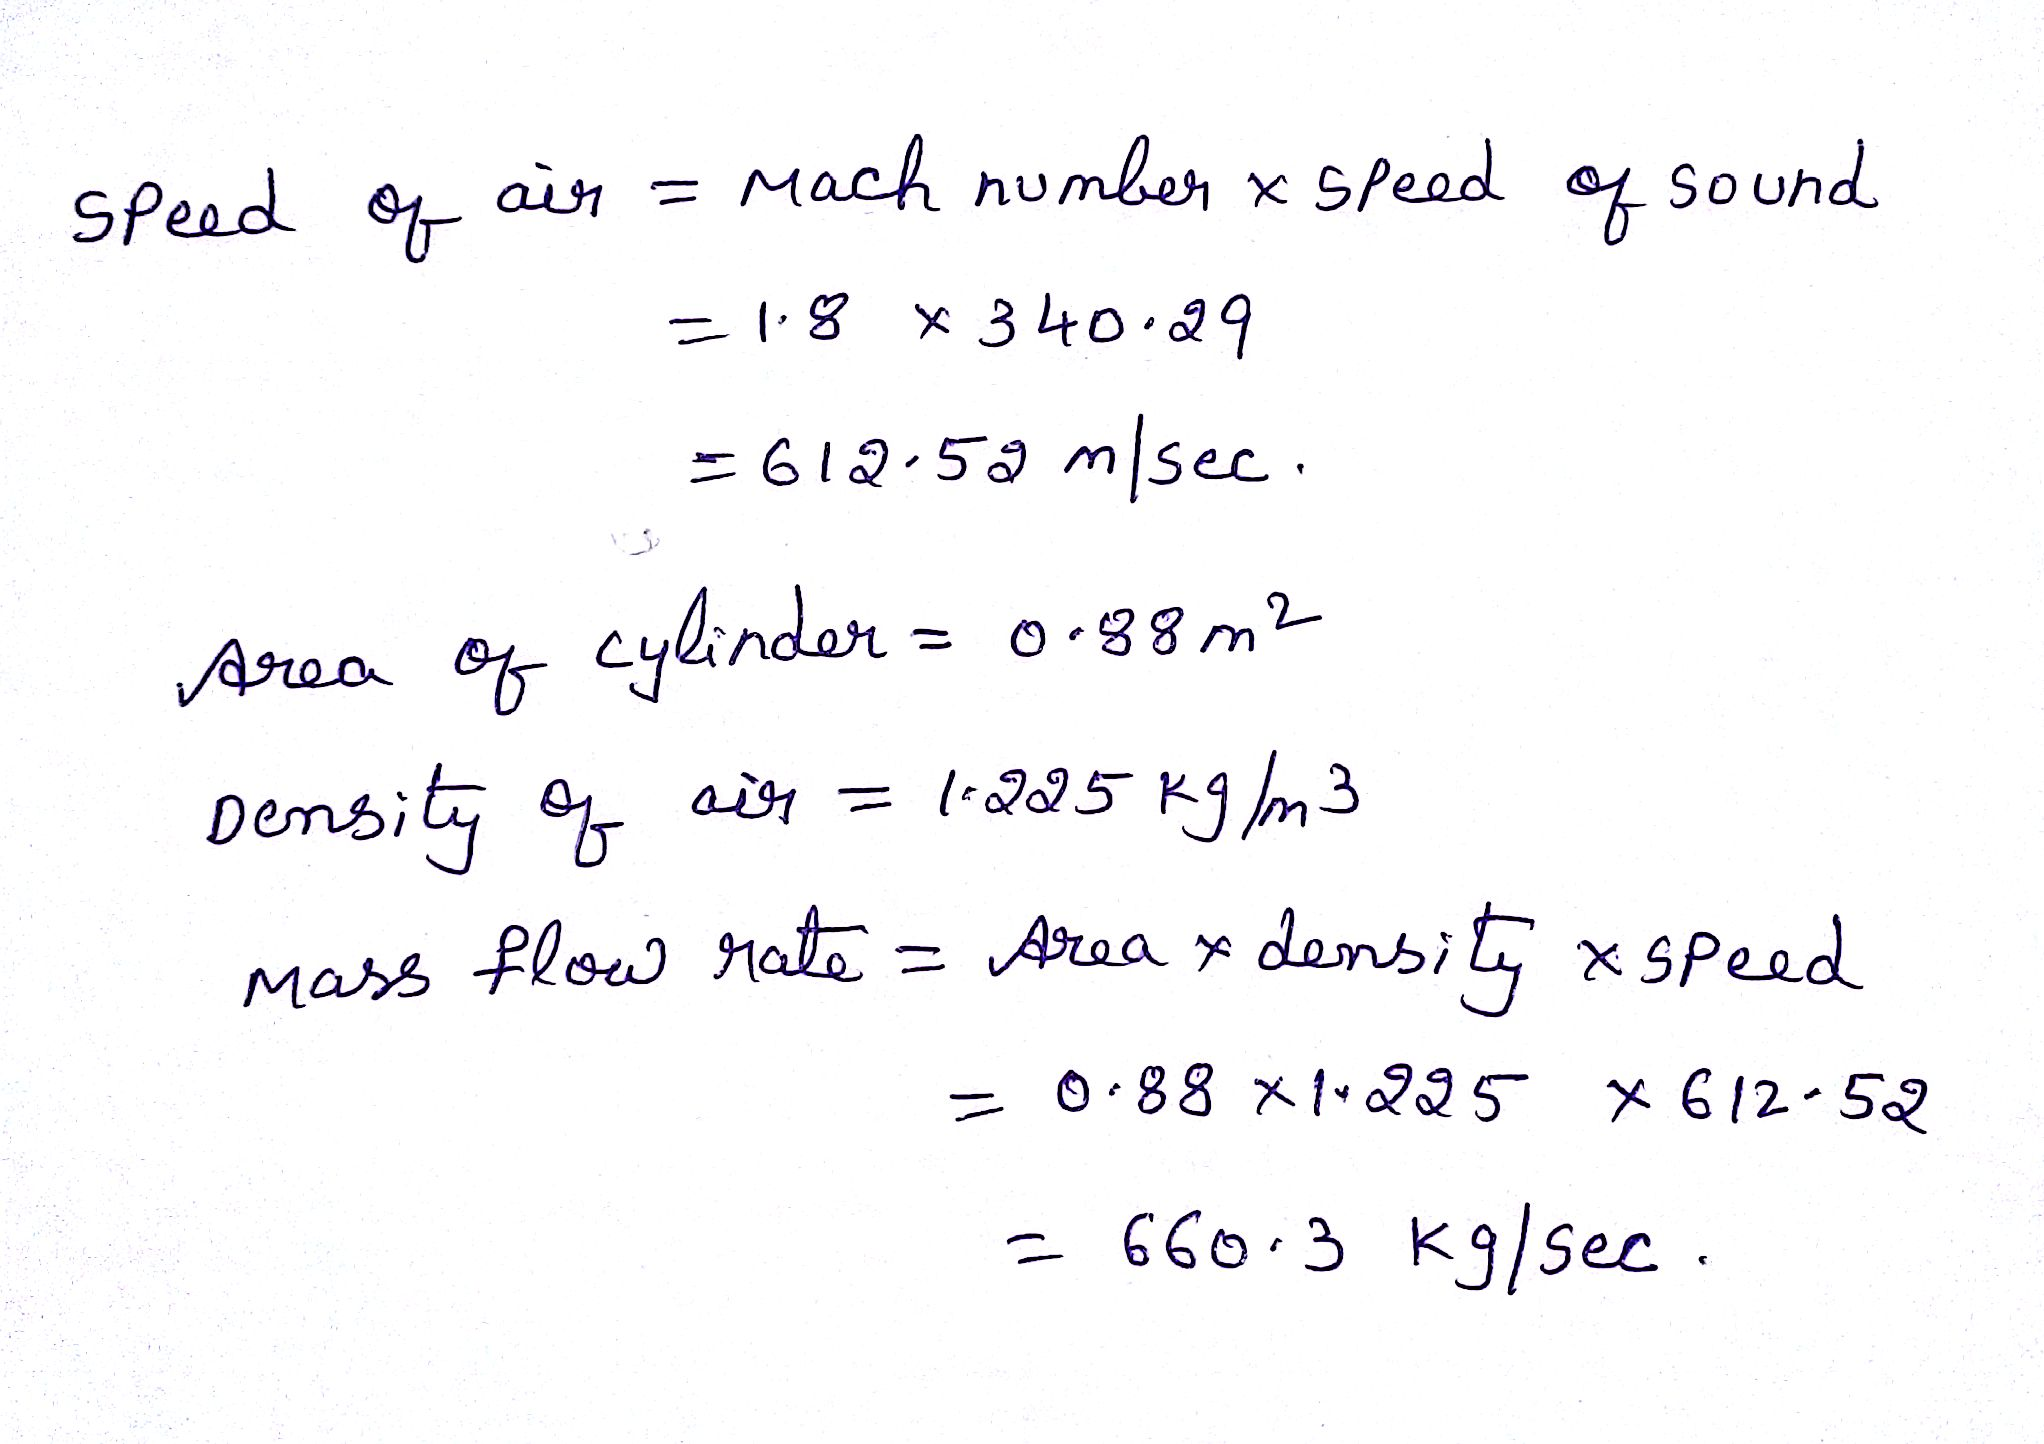 Speed of air = Mach number x speed of sound
= 1.8 x 340.29
= 612.52 m/sec.
Area of cylinder = 0.88 m²
Density of air = 1.225 kg/m3
Mass flow rate = Area x density x speed
= 0.88 x 1.225 x 612.52
= 660.3 kg/sec.